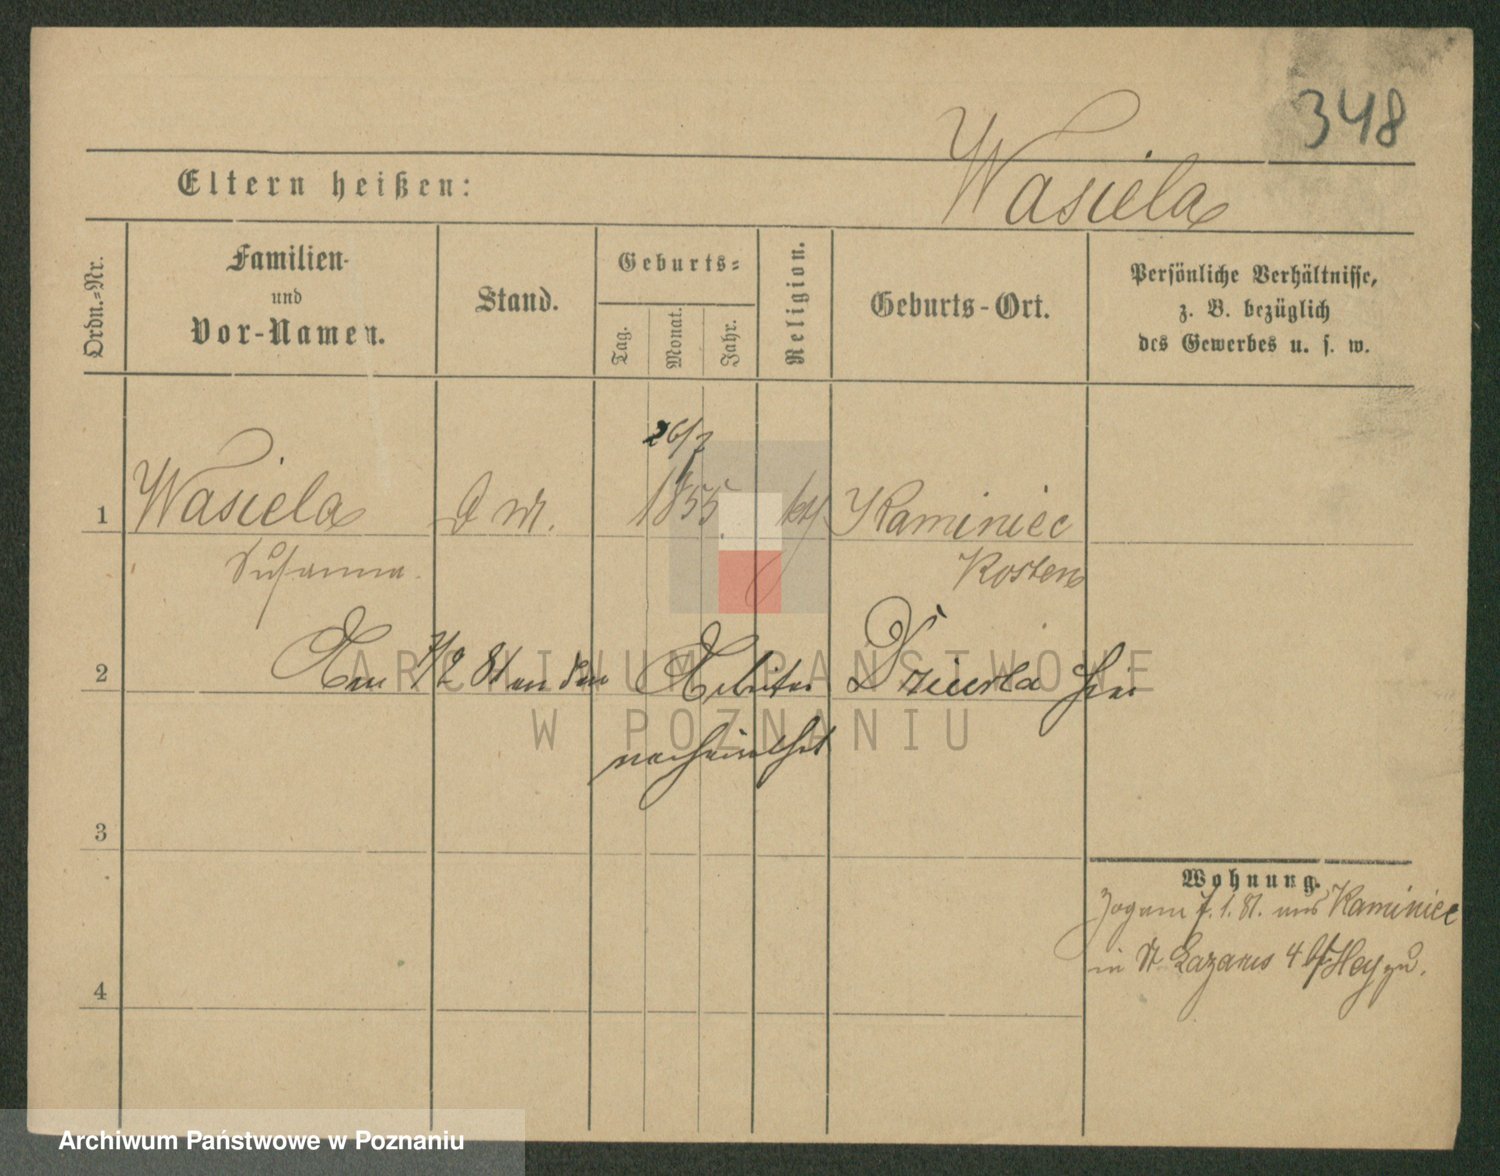 348
Wasiela
Eltern heißen:
Ordn.=Nr.
Familien-
und
Vor-Namen.
Stand.
Geburts=
Tag.
Monat.
Jahr.
Religion.
Geburts-Ort.
Persönliche Verhältnisse,
z. B. bezüglich
des Gewerbes u. s. w.
26/7
1 Wasiela 1855 kth Kaminiec
Susanna. Kosten
2 Am 81 an den Arbeiter hier
verheirathet
3
Wohnung.
Zog am 7. 1. 81. aus Kaminiec
in St Lazarus 4 b/ Hey zu.
4
ARCHIWUM PAŃSTWOWE
W POZNANIU
Archiwum Państwowe w Poznaniu